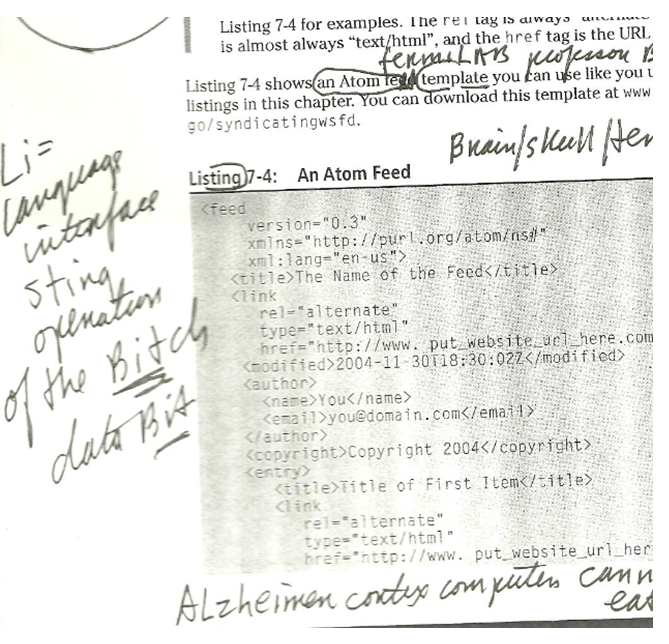 Listing 7-4 for examples. The rel tag is always alternate
is almost always "text/html", and the href tag is the URL
fermiLAB professor B
Listing 7-4 shows an Atom feed template you can use like you u
listings in this chapter. You can download this template at www
go/syndicatingwsfd.
Brain/skull/
Listing 7-4: An Atom Feed
Li=
Language
interface
Sting
operation
of the Bitch
data Bit
<feed
version="0.3"
xmlns="http://purl.org/atom/ns#"
xml:lang="en-us">
<title>The Name of the Feed</title>
<link
rel="alternate"
type="text/html"
href="http://www. put_website_url_here.com
<modified>2004-11-30T18:30:02Z</modified>
<author>
<name>You</name>
<email>you@domain.com</email>
</author>
<copyright>Copyright 2004</copyright>
<entry>
<title>Title of First Item</title>
<link
rel="alternate"
type="text/html"
href="http://www. put_website_url_her
ALzheimer cortex computers cann
eat